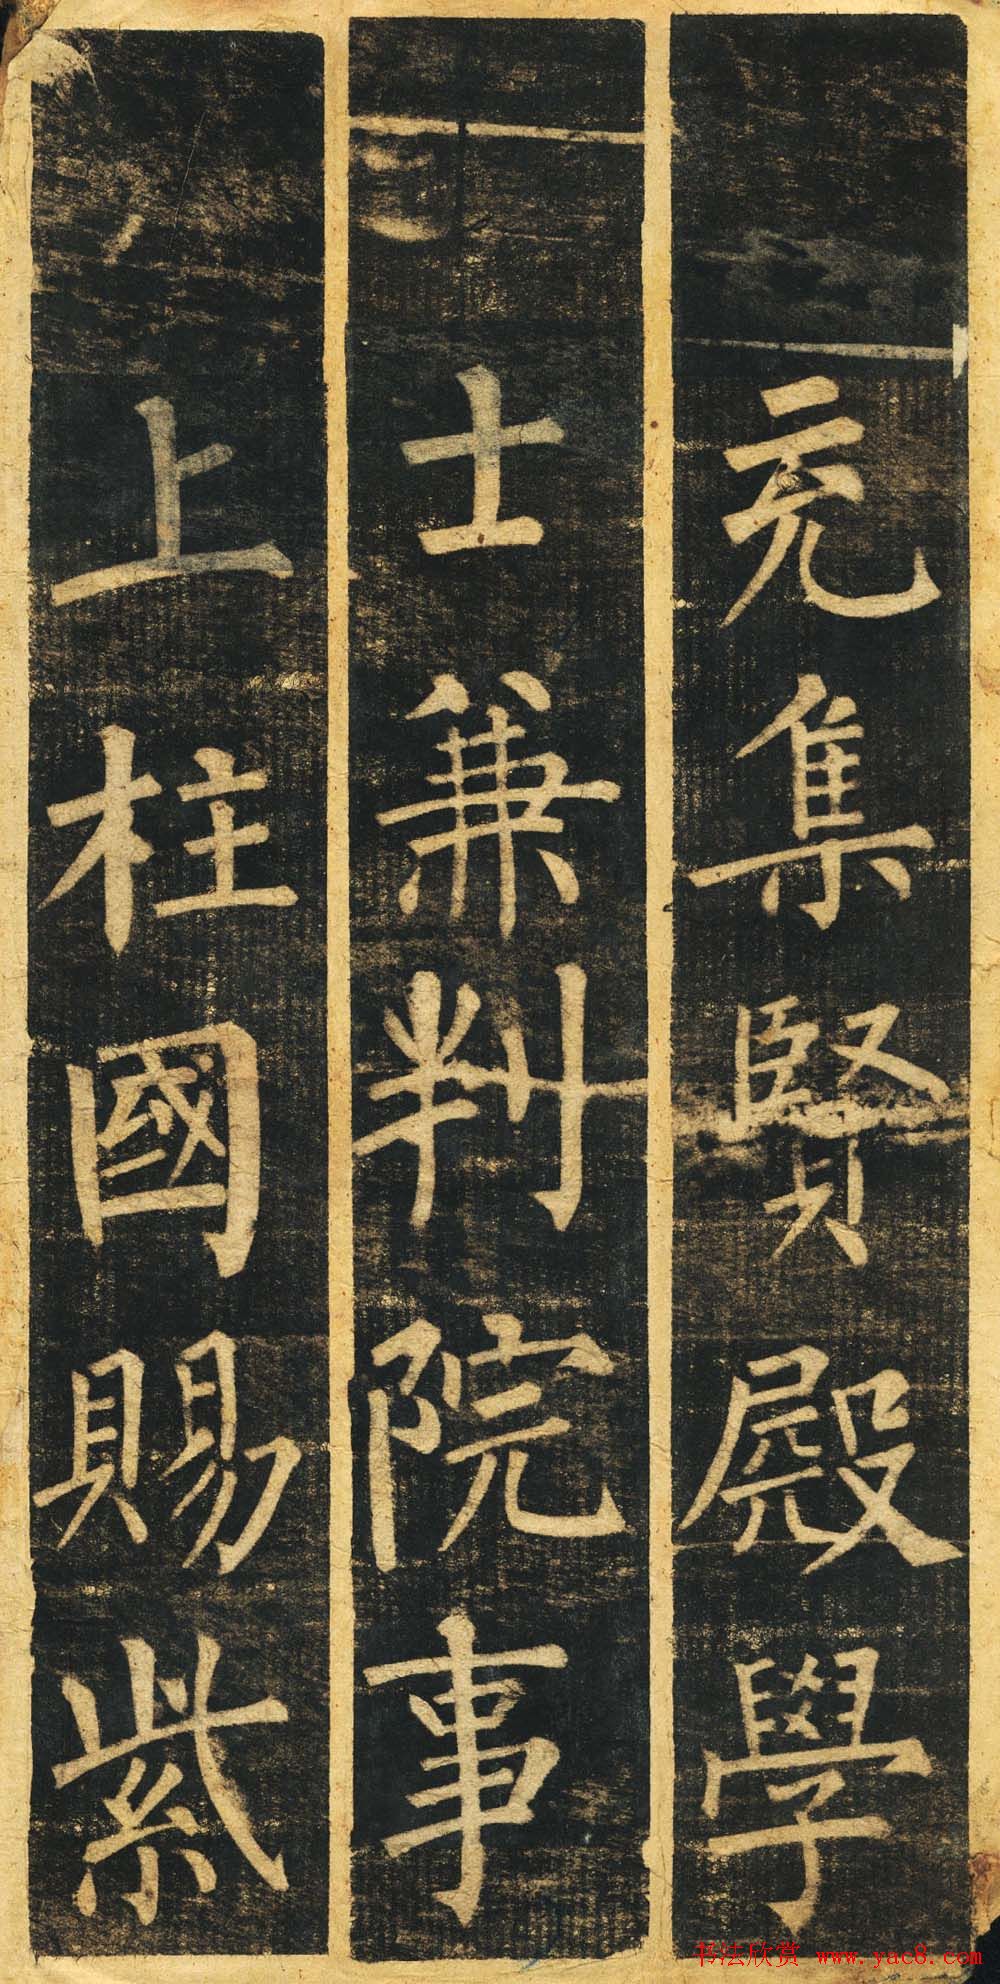 充集賢殿學
士兼判院事
上柱國賜紫
书法欣赏 www.yac8.com